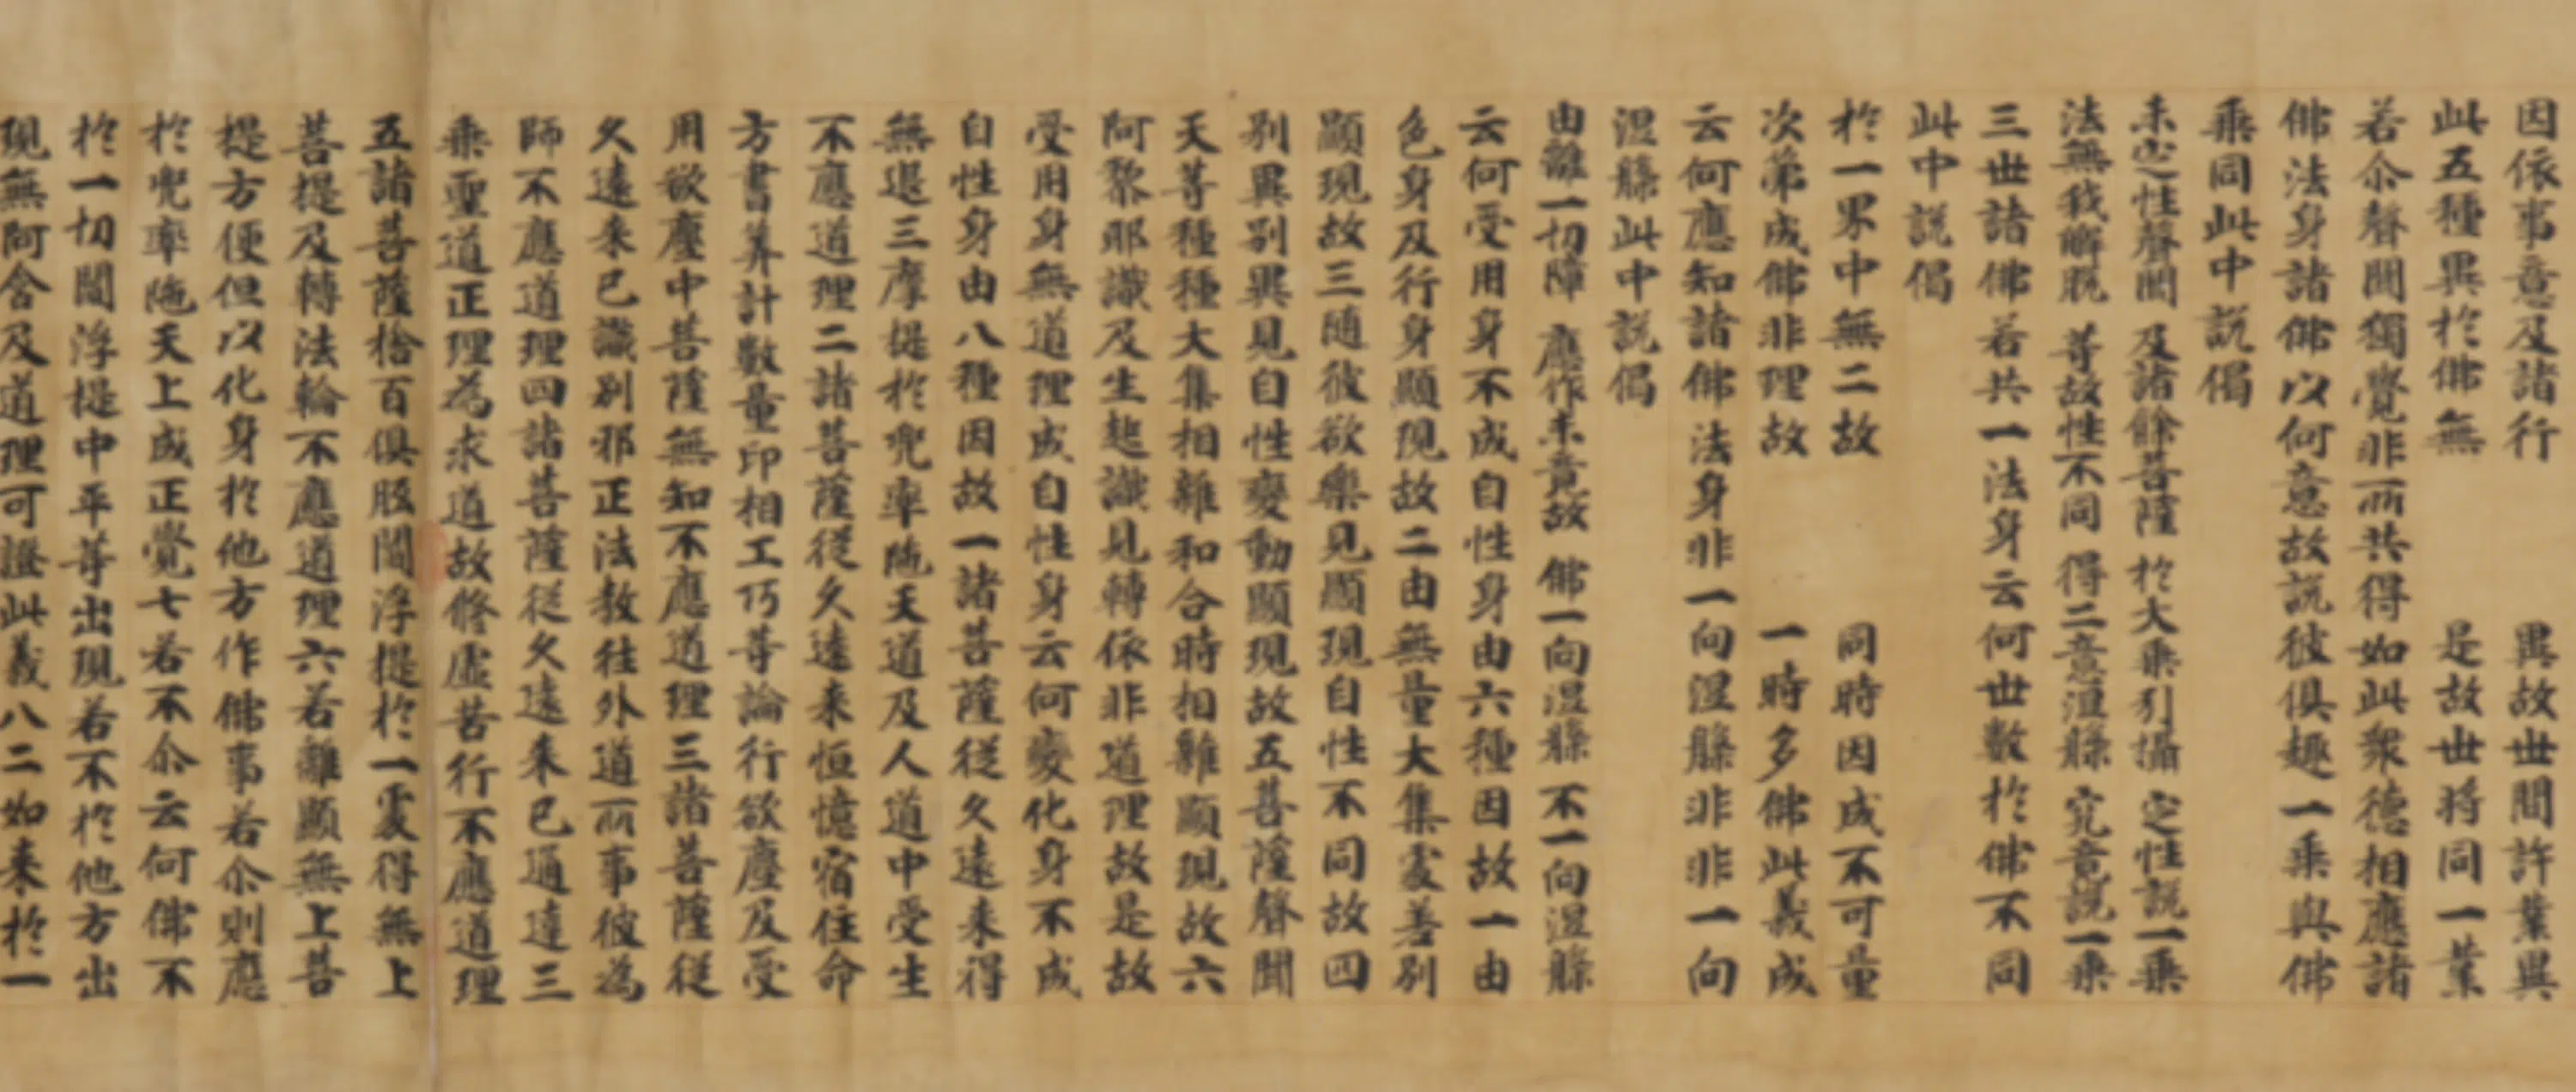 因依事意及諸行　異故世間許業異
此五種異於佛無　是故世將同一業
若尒聲聞獨覺非所共得如此衆德相應諸
佛法身諸佛以何意故說彼俱趣一乘與佛
乘同此中說偈
未定性聲聞　及諸餘菩薩　於大乘引攝　定性說一乘
法無我解脫　等故性不同　得二意涅槃　究竟說一乘
三世諸佛若共一法身云何世數於佛不同
此中說偈
於一界中無二故　同時因成不可量
次第成佛非理故　一時多佛此義成
云何應知諸佛法身非一向涅槃非非一向
涅槃此中說偈
由離一切障　應作未竟故　佛一向涅槃　不一向涅槃
云何受用身不成自性身由六種因故一由
色身及行身顯現故二由無量大集處差別
顯現故三隨彼欲樂見顯現自性不同故四
別異別異見自性變動顯現故五菩薩聲聞
天等種種大集相雜和合時相雜顯現故六
阿黎耶識及生起識見轉依非道理故是故
受用身無道理成自性身云何變化身不成
自性身由八種因故一諸菩薩從久遠来得
無退三摩提於兜率陁天道及人道中受生
不應道理二諸菩薩從久遠来恒憶宿住命
方書筭計數量印相工巧等論行欲塵及受
用欲塵中菩薩無知不應道理三諸菩薩從
久遠来已識別邪正法教往外道所事彼為
師不應道理四諸菩薩從久遠来已通達三
乘聖道正理為求道故修虛苦行不應道理
五諸菩薩捨百俱胝閻浮提於一處得無上
菩提及轉法輪不應道理六若離顯無上菩
提方便但以化身於他方作佛事若尒則應
於兜率陁天上成正覺七若不尒云何佛不
於一切閻浮提中平等出現若不於他方出
現無阿含及道理可證此義八二如来於一